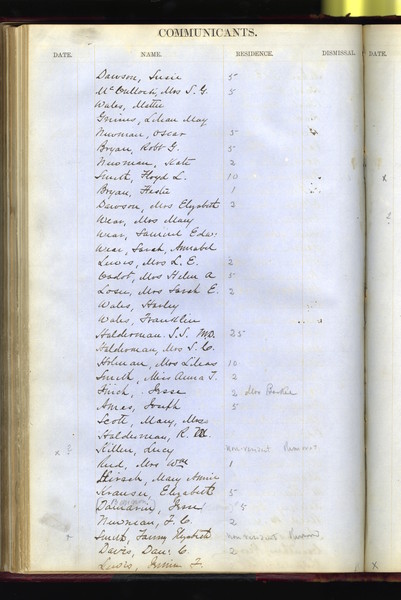 COMMUNICANTS.
DATE. NAME. RESIDENCE. DISMISSAL. DATE.
Dawson, Susie 5
McCulloch, Mrs S. G. 5
Wales, Mettie
Grimes, Lilian May
Newman, Oscar 5
Bryan, Robt G. 5
Newman, Kate 2
Smith, Floyd L. 10
Bryan, Hester 1
Dawson, Mrs Elizabeth 2
Wear, Mrs Mary
Wear, Samuel Edw.
Wear, Sarah, Annabel
Lewis, Mrs L. E. 2
Cadot, Mrs Helen A 5
Mrs Sarah E. 2
Wales, Harley
Wales, Franklin
Halderman. S.S. MD. 25
Halderman, Mrs S. C.
Holman, Mrs Lilias 10
Smith, Miss Anna T. 2
Finch, Jesse 2 Mrs
Ames, Joseph 5
Scott, Mary, Miss
Halderman, R. M.
x ? Killen, Lucy non-resident
Reed, Mrs Wm 1
Hirsch, Mary Annie
Krauser, Elizabeth 5
Jesse 5
Newman, F. C. 2
Smith, Fanny Elizabeth non-resident
Davis, Dan. C. 2
Lewis, F.